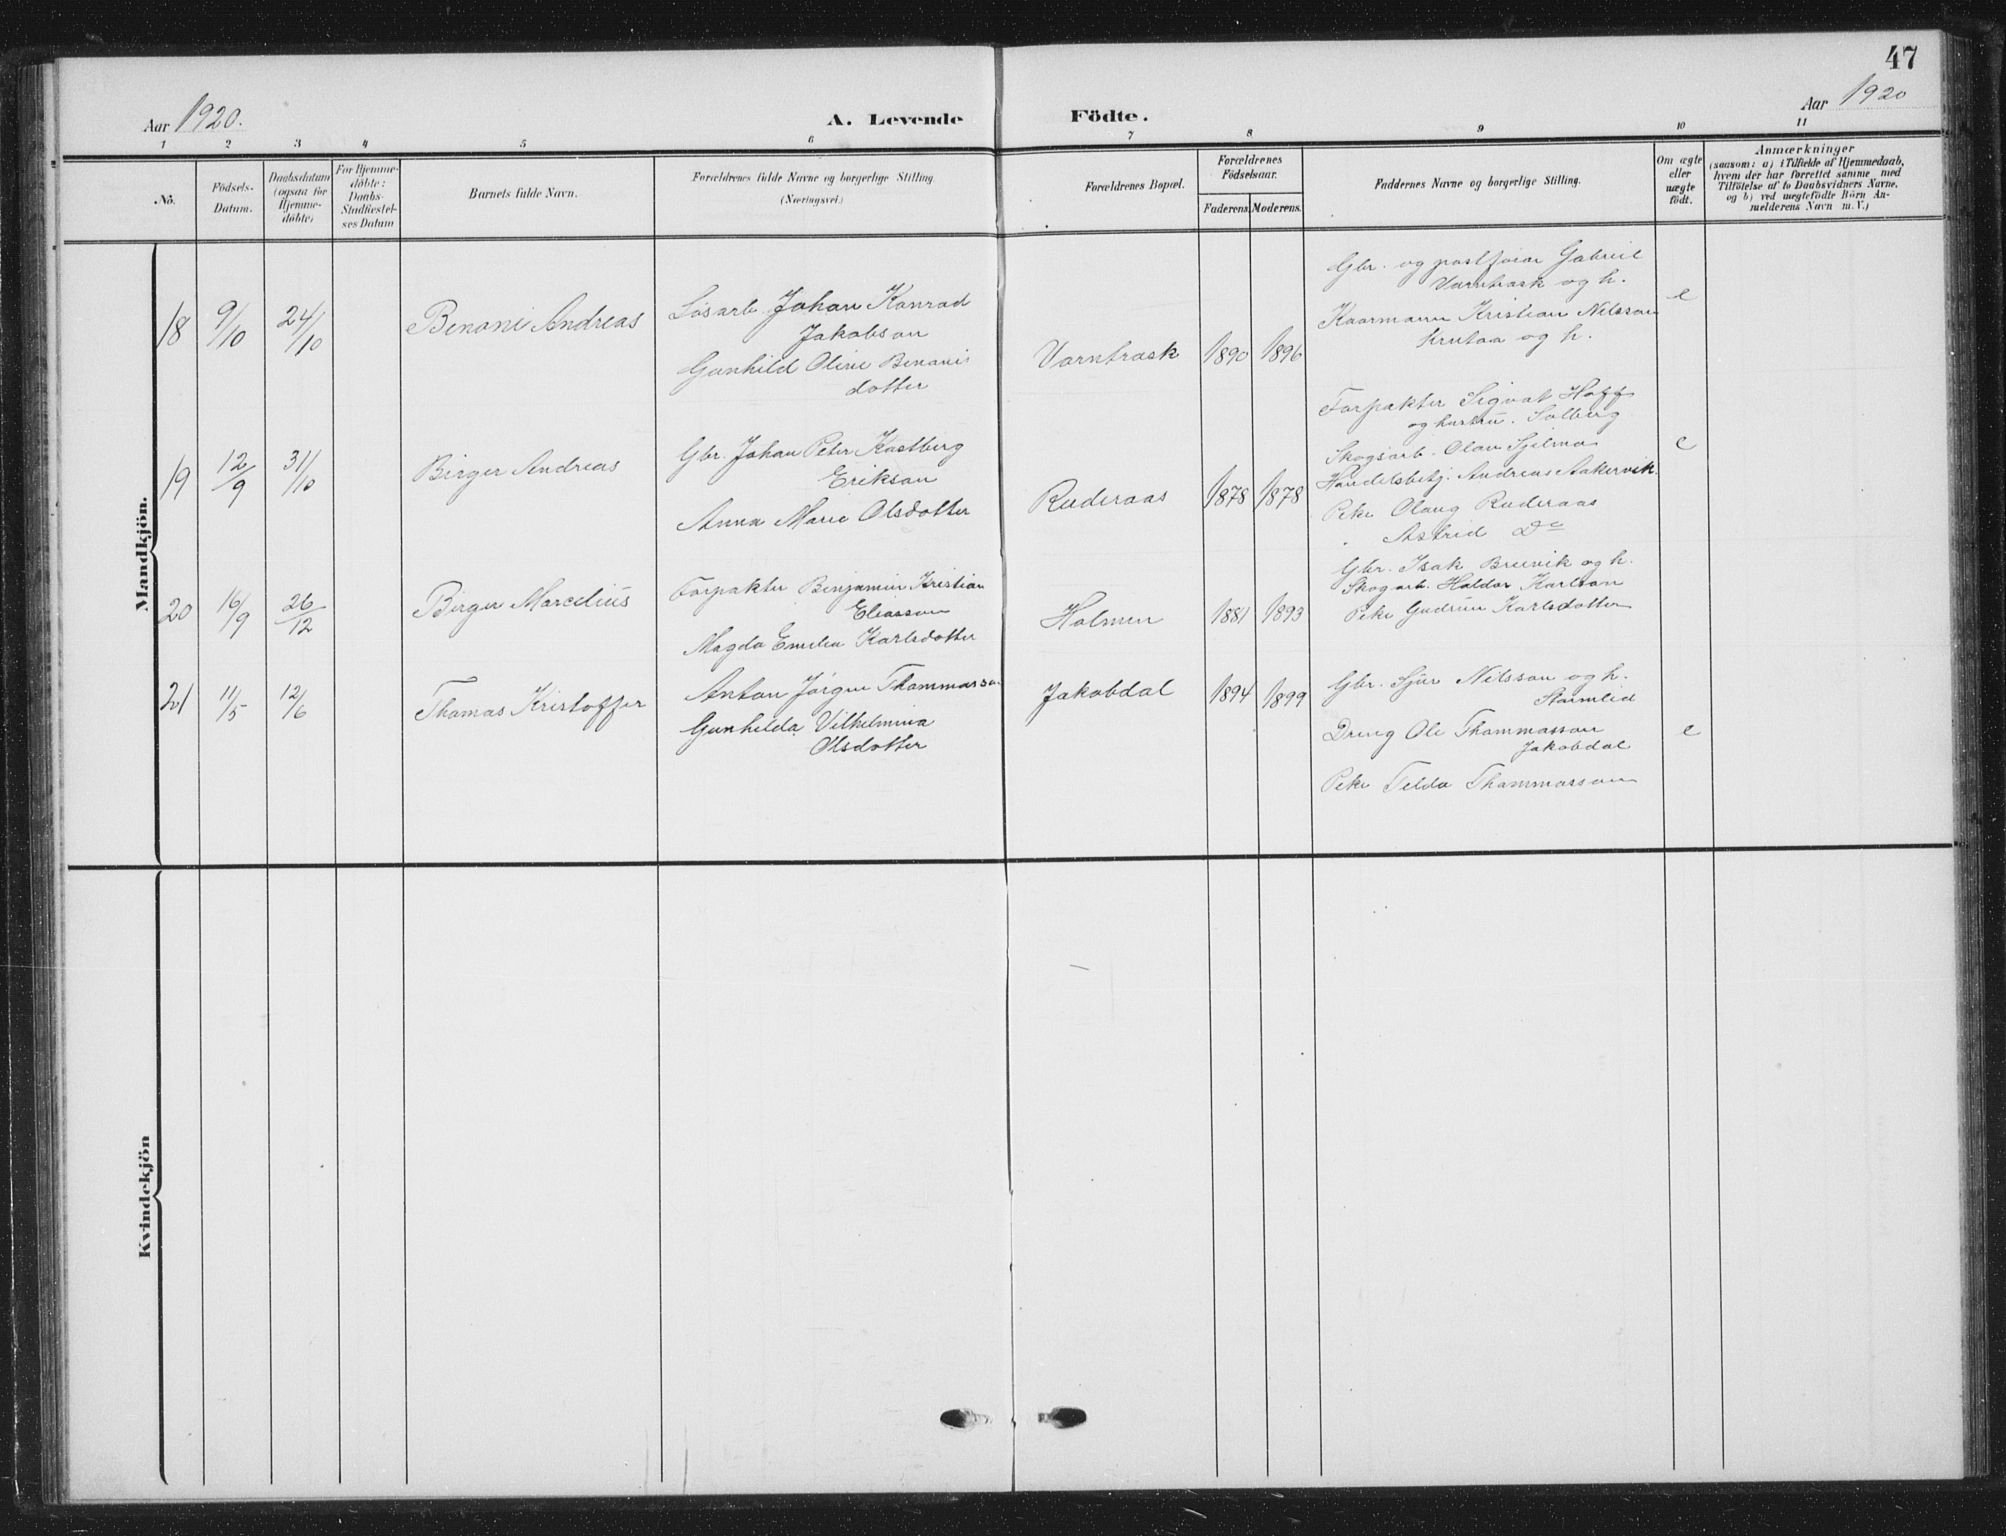 47
Aar 1920.
A. Levende Födte.
Aar 1920
1 2 3 4 5 6 7 8 9 10 11
No.
Födsels-
Datum.
Daabsdatum
(ogsaa for
Hjemme-
döbte)
For Hjemme-
döbte:
Daabs-
Stadfestel-
ses Datum
Barnets fulde Navn.
Forældrenes fulde Navne og borgerlige Stilling
(Næringsvei.)
Forældrenes Bopæl.
Forældrenes
Födselsaar.
Faderens. Moderens.
Faddernes Navne og borgerlige Stilling.
Om ægte
eller
uægte
födt.
Anmærkninger
(saasom: a) i Tilfælde af Hjemmedaab,
hvem der har forrettet samme, med
Tilföielse af to Daabsvidners Navne,
og b) ved uægtefödte Börn An-
melderens Navn m. V.)
Mandkjön.
18 9/10 24/10 Benoni Andreas
Løsarb. Johan Konrad
Jakobson
Gunhild Oline Benoni
dotter
Varntrask 1890 1896
Gbr. og postfører Gabriel
Varntrask og h.
Kaarmann Kristian Nilsson
Krutaa og h.
e
19 12/9 31/10 Birger Andreas
Gbr. Johan Peter Kastberg
Erikson
Anna Marie Olsdotter
Ruderaas 1878 1878
Forpakter Sigvat Hoff
og hustru. Solberg
Skogsarb. Olav Sjelmo
Handelsbetj. Andreas Aakervik
Peke Olaug Ruderaas
" Astrid Do
e
20 16/9 26/12 Birger Marcelius
Forpakter Benjamin Kristian
Eliasson
Magda Emelia Karlsdotter
Holmen 1881 1893
Gbr. Isak Bruvik og h.
Skogarb. Haldor Karlson
Peke Gudrun Karlsdotter
21 11/5 12/6 Thomas Kristoffer
Anton Jörgen Thommasson
Gunhilda Vilhelmina
Olsdotter
Jakobdal 1894 1899
Gbr. Sjur Nilsson og h.
Stormlid
Dreng Ole Thommasson
Jakobdal
Peke Telda Thommasson
e
Kvindekjön